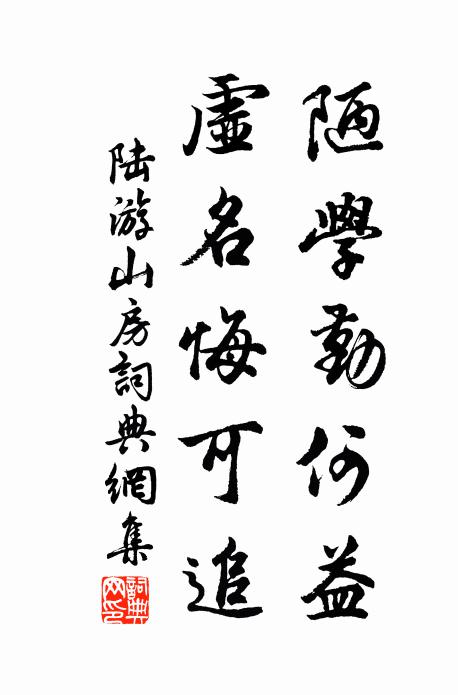 陋學勤何益
虛名悔可追
陸游山房詞典網集
詞典網印